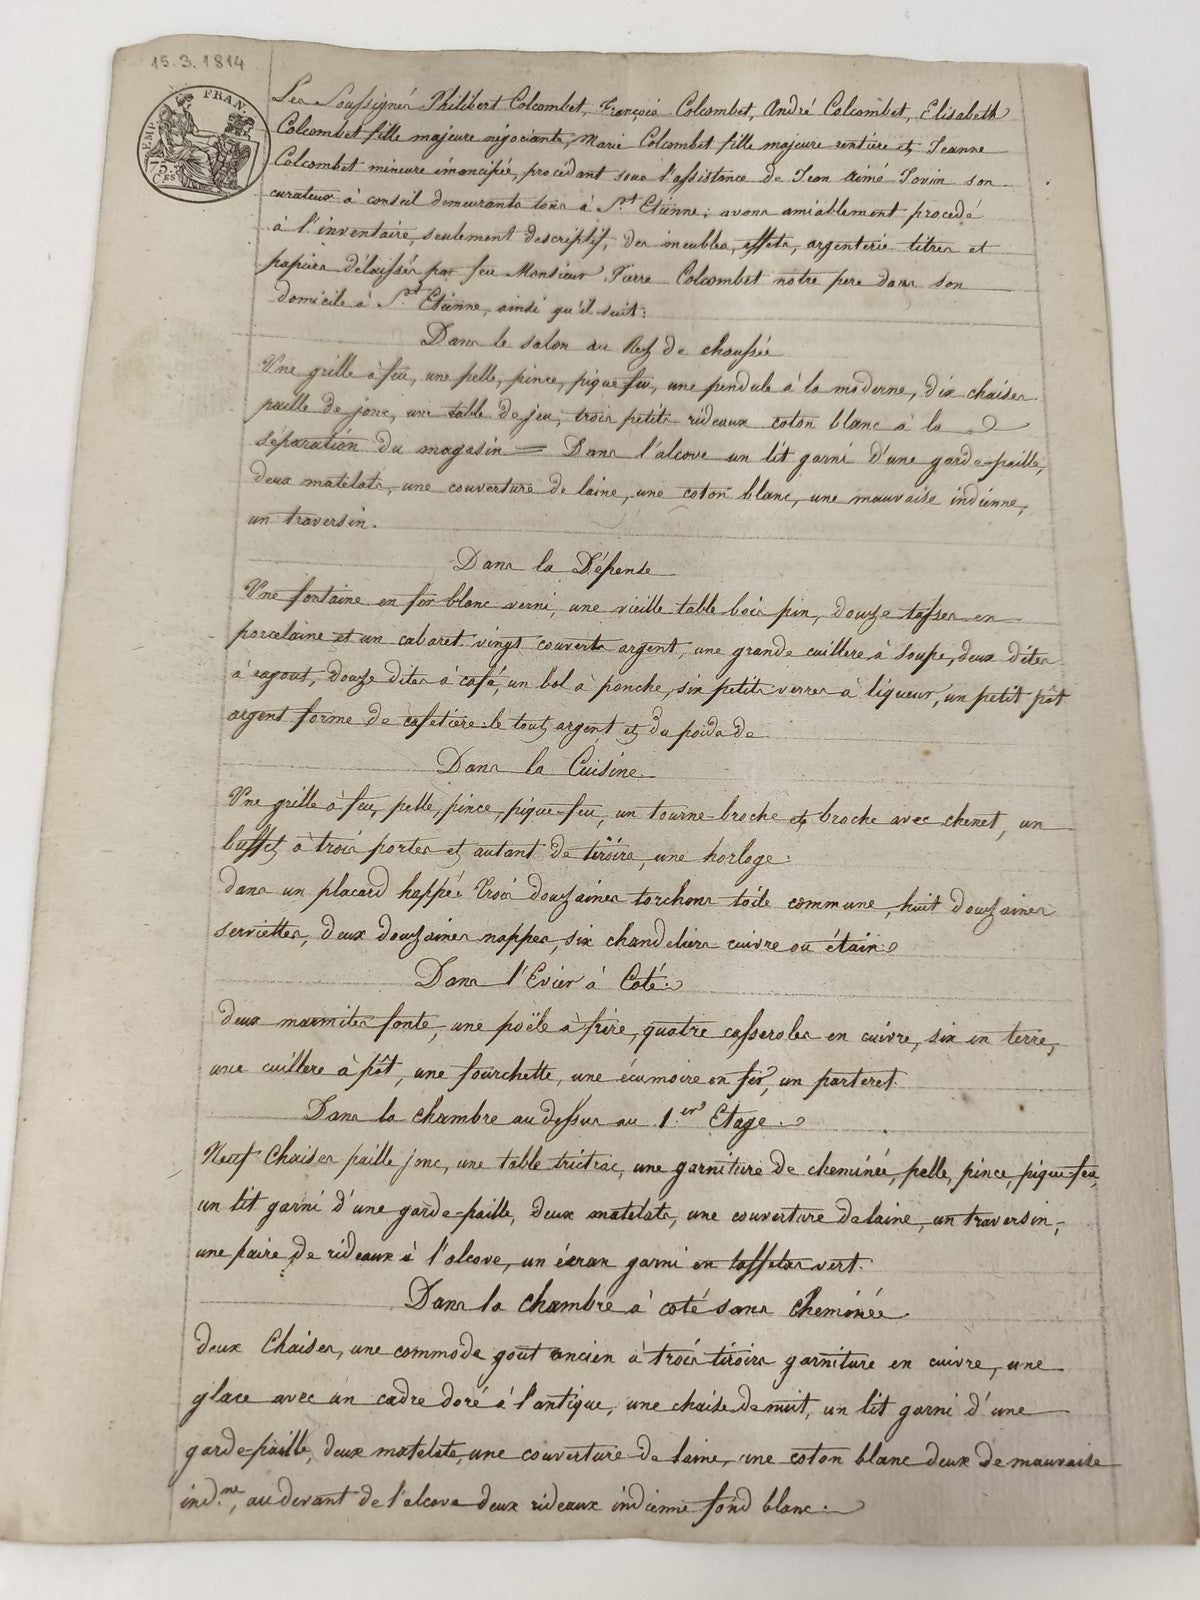 15.3.1814
EMP. FRAN.
75
CES
Les Soussignés Philibert Colcombet, François Colcombet, André Colcombet, Elisabeth
Colcombet fille majeure négociante, Marie Colcombet fille majeure rentière et Jeanne
Colcombet mineure émancipée, procédant sous l'assistance de Jean Aimé Jovin son
curateur à conseil demeurants tous à St. Etienne; avons amiablement procédé
à l'inventaire, seulement descriptif, des meubles, effets, argenterie titres et
papiers délaissés par feu Monsieur Pierre Colcombet notre pere dans son
domicile à St. Etienne, ainsi qu'il suit:
Dans le salon au Rez de chaussée
Une grille à feu, une pelle, pince, pique-feu, une pendule à la moderne, dix chaises
paille de jonc, une table de jeu, trois petits rideaux coton blanc à la
séparation du magasin = Dans l'alcove un lit garni d'une garde-paille,
deux matelats, une couverture de laine, une coton blanc, une mauvaise indienne,
un traversin.
Dans la Dépense
Une fontaine en fer blanc verni, une vieille table bois pin, douze tasses en
porcelaine et un cabaret. vingt couverts argent, une grande cuillere à soupe, deux dites
à ragout, douze dites à café, un bol à ponche, six petits verres à liqueur, un petit pot
argent forme de cafetière le tout argent et du poids de
Dans la Cuisine
Une grille à feu, pelle, pince, pique-feu, un tourne-broche et broche avec chenet, un
buffet à trois portes et autant de tiroirs, une horloge.
dans un placard happé trois douzaines torchons toile commune, huit douzaines
serviettes, deux douzaines nappes, six chandeliers cuivre ou étain
Dans l'Evier à Coté.
deux marmites fonte, une poële à frire, quatre casseroles en cuivre, six en terre,
une cuillere à pôt, une fourchette, une écumoire en fer, un parteret.
Dans la chambre au dessus au 1.er Etage.
Neuf Chaises paille jonc, une table trictrac, une garniture de cheminée, pelle, pince, pique-feu,
un lit garni d'une garde-paille, deux matelats, une couverture de laine, un traversin,
une paire de rideaux à l'alcove, un écran garni en taffetas vert.
Dans la chambre à coté sans cheminée
deux Chaises, une commode gout ancien à trois tiroirs garniture en cuivre, une
glace avec un cadre doré à l'antique, une chaise de nuit, un lit garni d'une
garde-paille, deux matelats, une couverture de laine, une coton blanc deux de mauvaise
ind.ne, au devant de l'alcove deux rideaux indienne fond blanc.